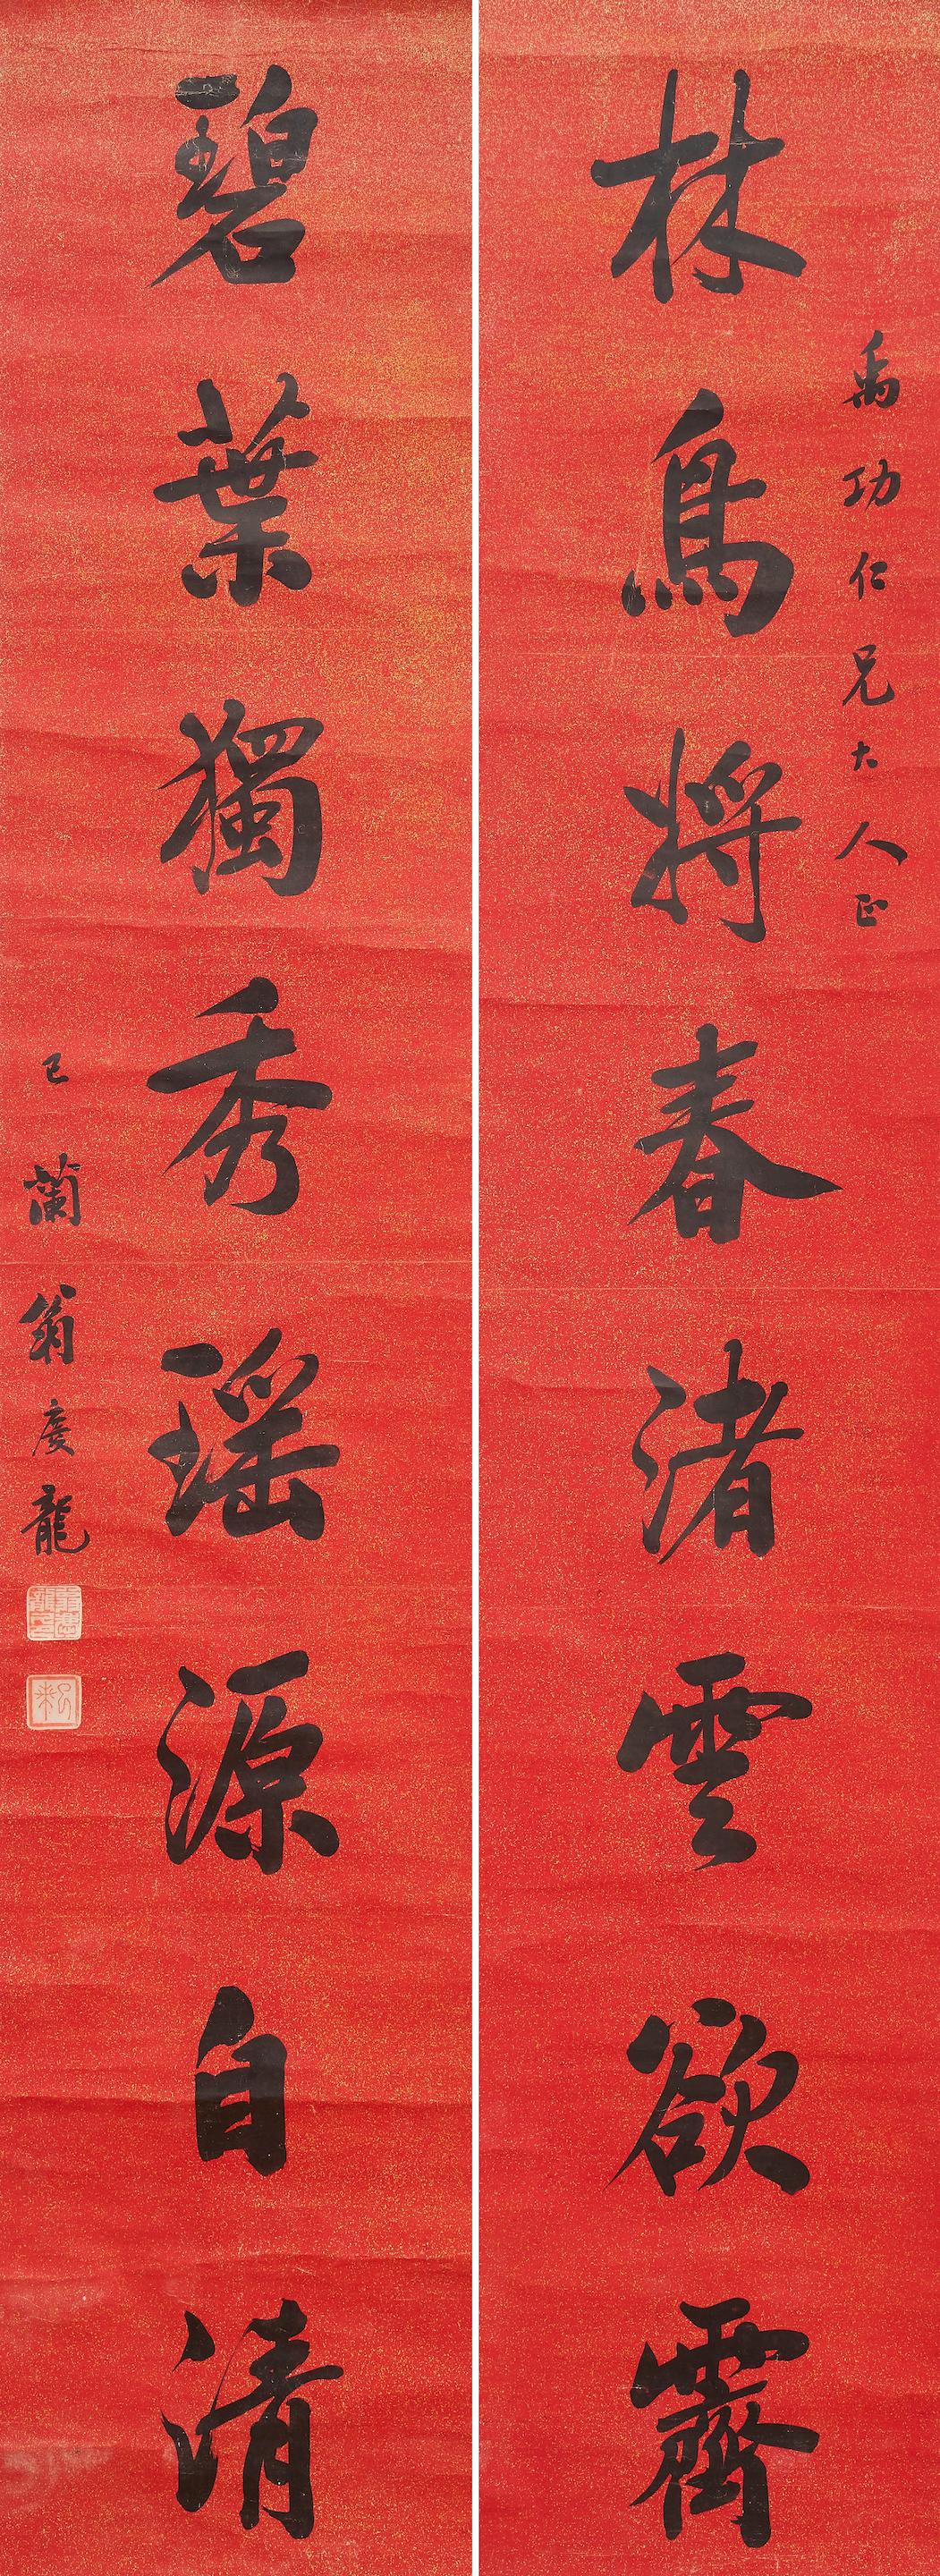 禹功仁兄大人正
林鳥將春渚雲欲霽
碧葉獨秀瑤源自清
巳蘭翁慶龍